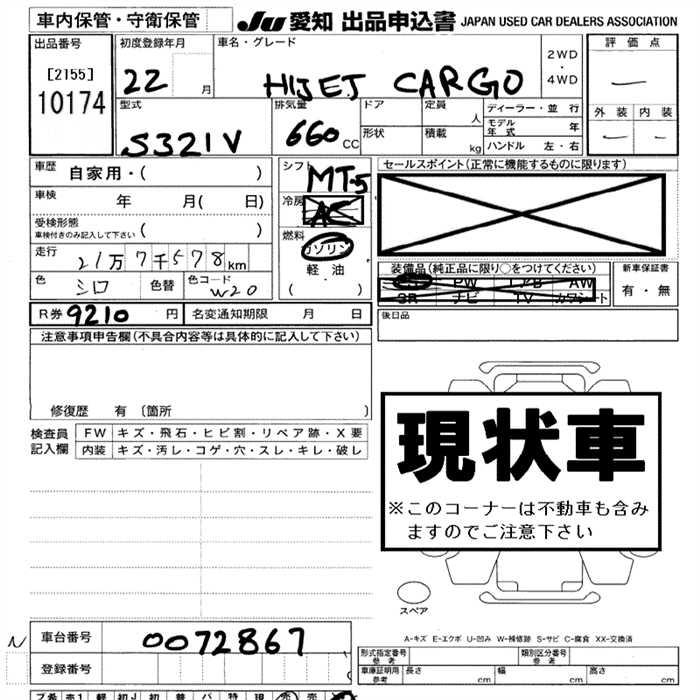 車内保管・守衛保管
JU 愛知 出品申込書 JAPAN USED CAR DEALERS ASSOCIATION
出品番号
[2155]
10174
初度登録年月
22 月
車名・グレード
HIJET CARGO
2WD
・
4WD
評価点
—
外装 内装
— —
型式
S321V
排気量
660 CC
ドア
形状
定員 人
積載 kg
ディーラー・並行
モデル年式 年
ハンドル 左・右
車歴 自家用・( )
車検 年 月( 日)
受検形態
車検付きのみ記入して下さい ( )
走行 21万7千578km
色 シロ 色替 色コード W20
シフト MT-5
冷房 AC
燃料 ガソリン
軽油
( ・ )
セールスポイント(正常に機能するものに限ります)
装備品(純正品に限り○をつけてください)
PS PW エアB AW
SR ナビ TV カワシート
新車保証書
有・無
後日品
R券 9210 円 名変通知期限 月 日
注意事項申告欄(不具合内容等は具体的に記入して下さい)
修復歴 有 〔箇所 〕
検査員記入欄
FW キズ・飛石・ヒビ割・リペア跡・X要
内装 キズ・汚レ・コゲ・穴・スレ・キレ・破レ
現状車
※このコーナーは不動車も含み
ますのでご注意下さい
スペア
A-キズ E-エクボ U-凹み W-補修跡 S-サビ C-腐食 XX-交換済
N 車台番号 0072867
登録番号
形式指定番号 参考 類別区分番号 参考
車庫証明用 参考 長さ cm 幅 cm 高さ cm